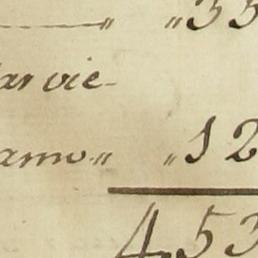 " " 35
arvie-
amo " " 12
4 " 53